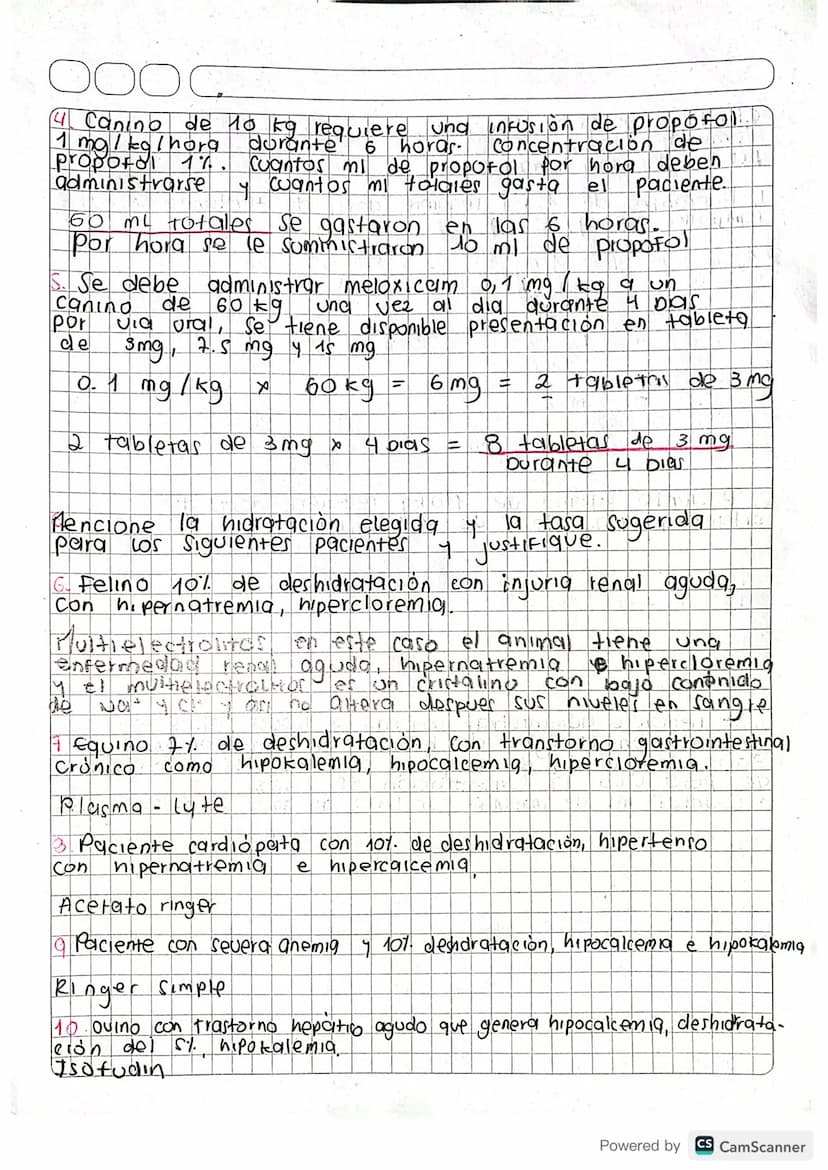 4. Canino de 10 kg requiere una infusión de propofol
1 mg/kg/hora durante 6 horas. Concentración de
propofol 1%. Cuantos ml de propofol por hora deben
administrarse y cuantos ml totales gasta el paciente.
60 mL totales se gastaron en las 6 horas.
Por hora se le suministraron 10 ml de propofol
5. Se debe administrar meloxicam 0,1 mg/kg a un
canino de 60 kg una vez al dia durante 4 Dias
por via oral, se tiene disponible presentación en tableta
de 3mg, 7.5 mg y 15 mg
0.1 mg/kg x 60 kg = 6 mg = 2 tabletas de 3 mg
2 tabletas de 3mg x 4 Dias = 8 tabletas de 3 mg
Durante 4 Dias
Mencione la hidratación elegida y la tasa sugerida
para los siguientes pacientes y justifique.
6. Felino 10% de deshidratación con injuria renal aguda,
con hipernatremia, hipercloremia.
Multielectrolitos, en este caso el animal tiene una
enfermedad renal aguda, hipernatremia e hipercloremia
y el multielectrolitos es un cristalino con bajo contenido
de Na+ y Cl- y asi no altera despues sus niveles en sangre
7 Equino 7% de deshidratación, con transtorno gastrointestinal
crónico como hipokalemia, hipocalcemia, hipercloremia.
Plasma - Lyte
3. Paciente cardiópata con 10% de deshidratación, hipertenso
con hipernatremia e hipercalcemia,
Acetato ringer
9 Paciente con severa anemia y 10% deshidratación, hipocalcemia e hipokalemia
Ringer simple
10. Ovino con trastorno hepático agudo que genera hipocalcemia, deshidrata-
ción del 5%, hipokalemia.
Isofudin
Powered by CS CamScanner